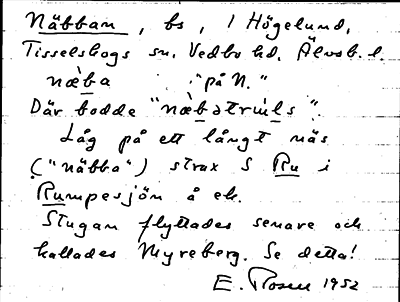 Näbban, bs, / Högelund,
Tisselskogs sn. Vedbo hd. Älvsb. l.
næ̀ba "på N."
Där bodde "næ̀bətruls".
Låg på ett långt näs
("näbba") strax S Ru i
Rumpesjön å ek.
Stugan flyttades senare och
kallades Myreberg. Se detta!
E. Rosell 1952